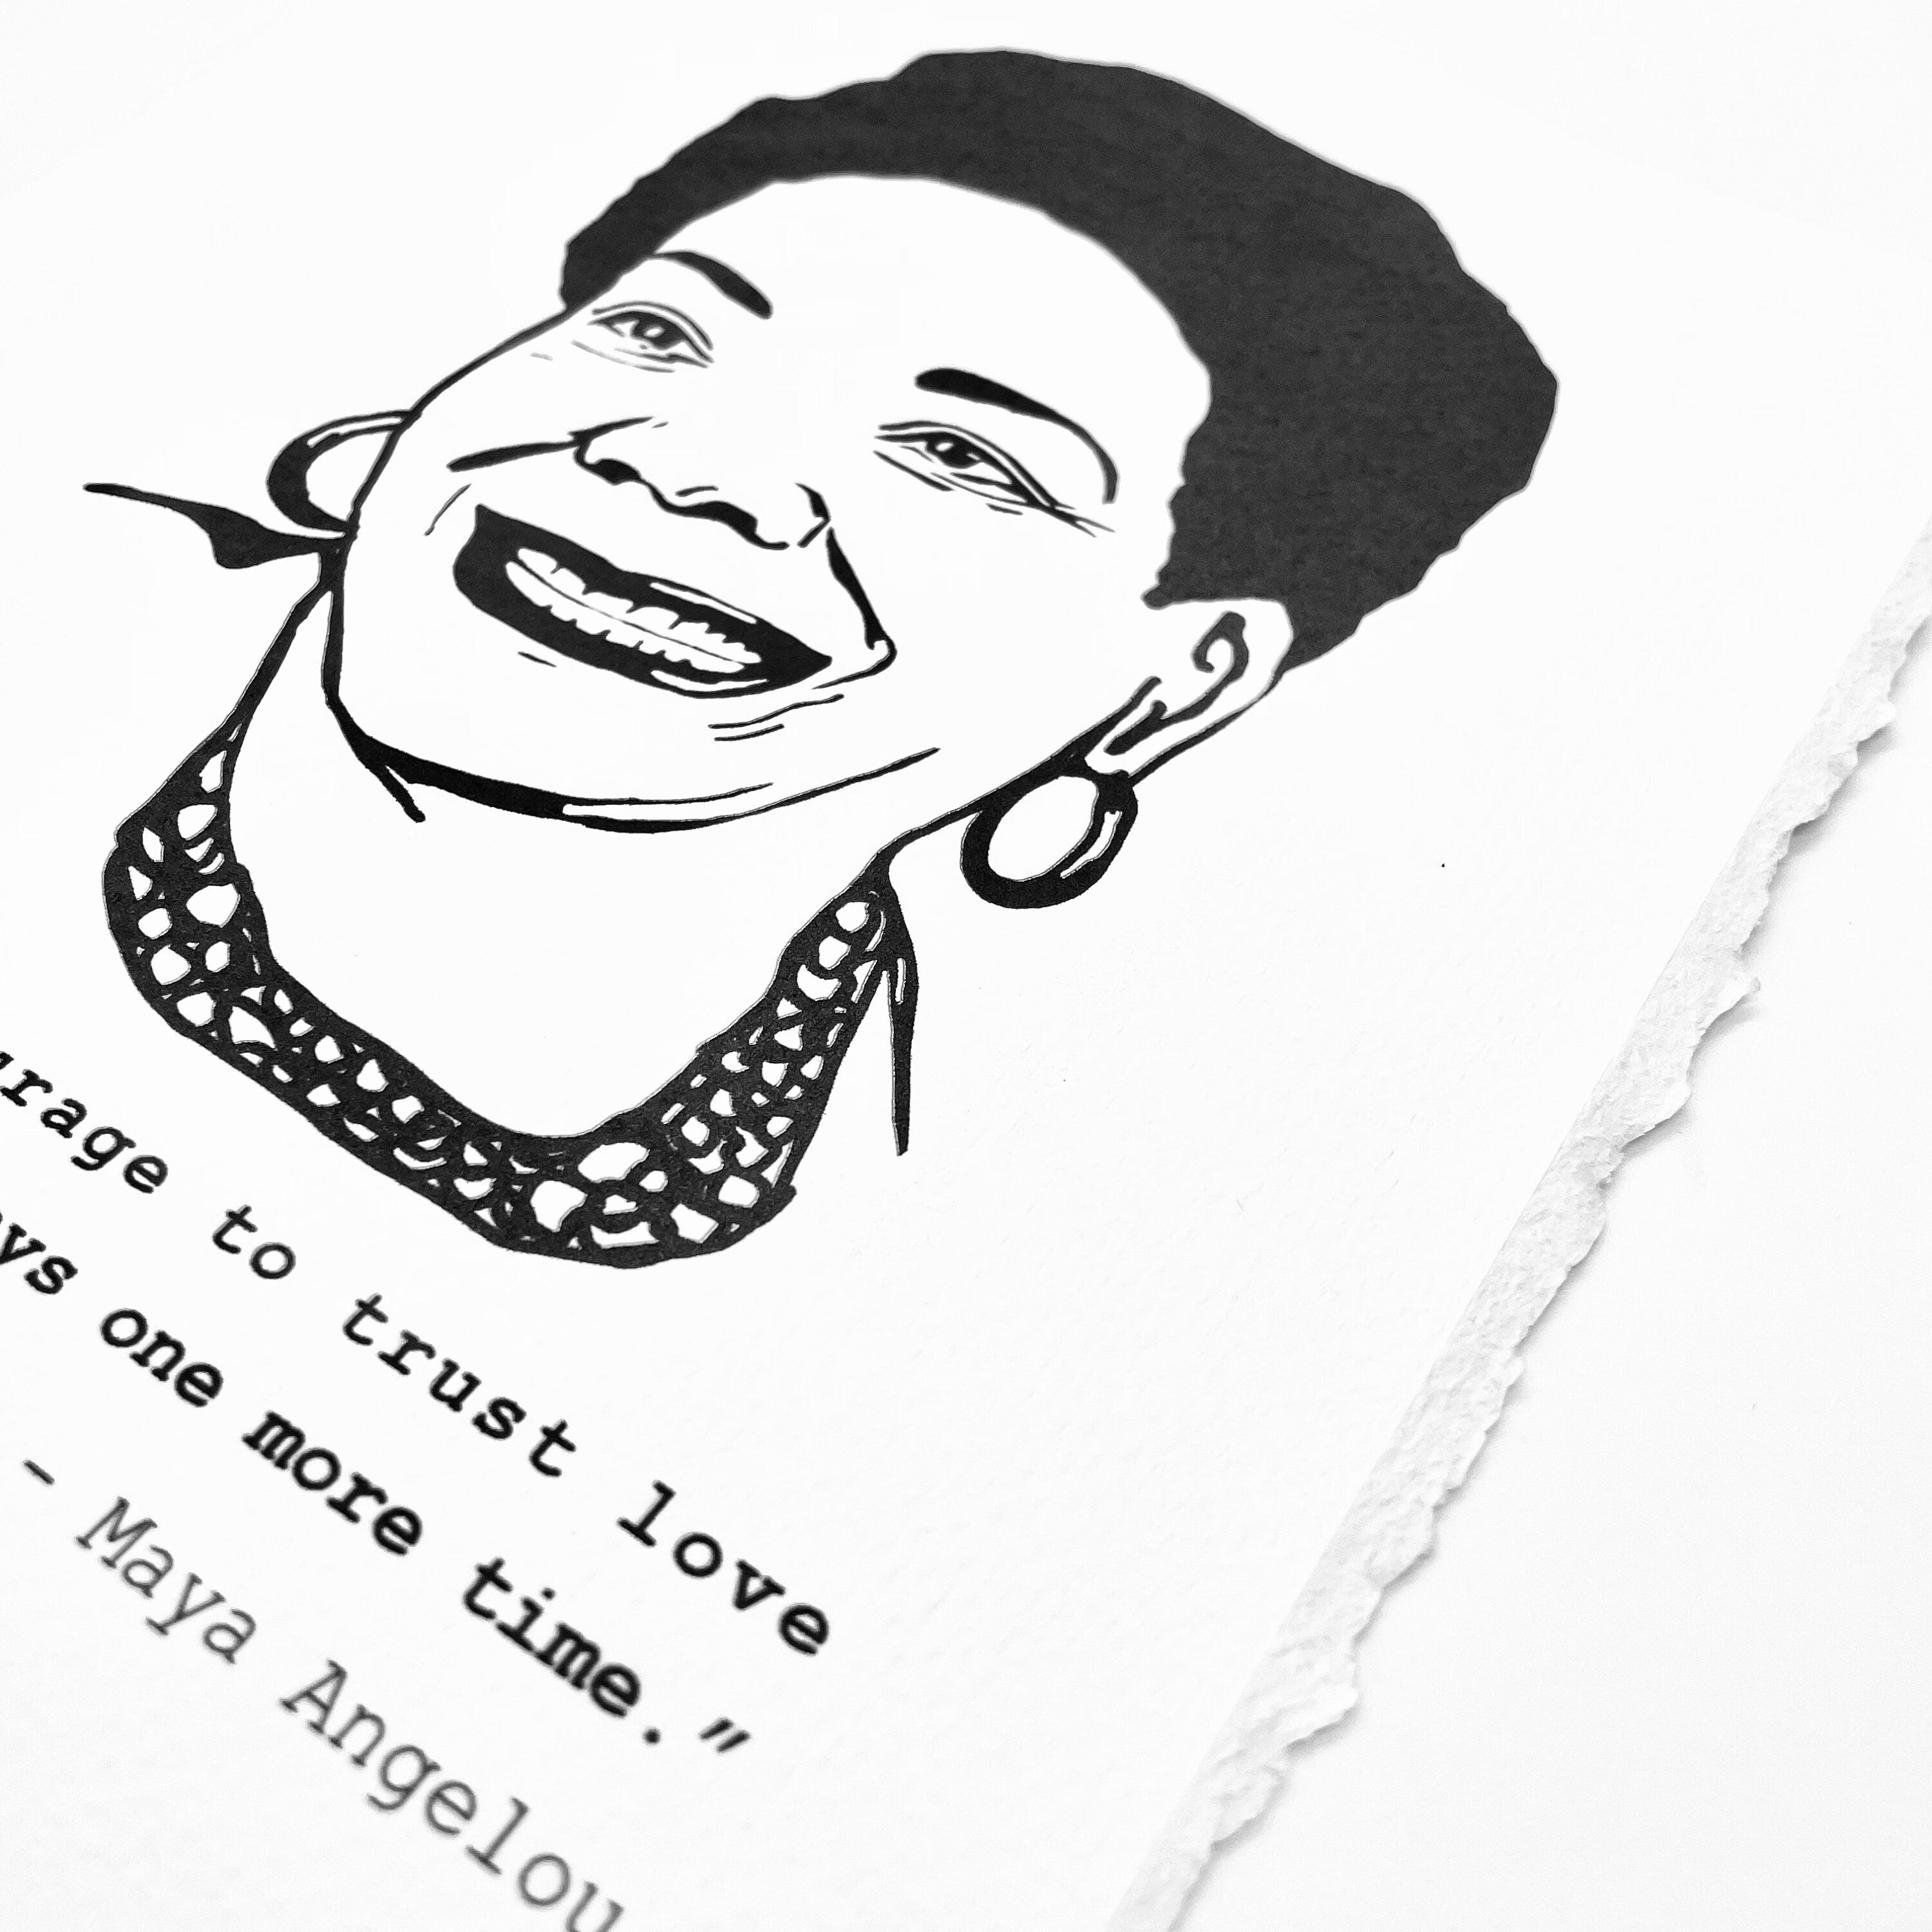 urage to trust love
ays one more time.”
- Maya Angelou